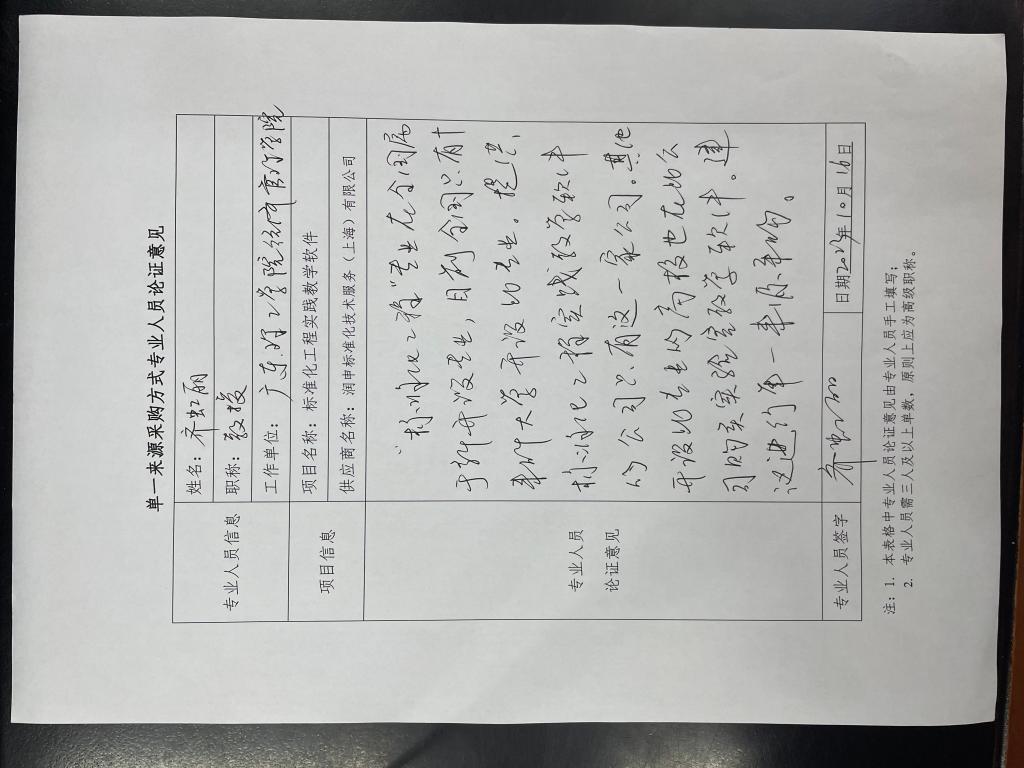 单一来源采购方式专业人员论证意见
专业人员信息
姓名：齐虹丽
职称：教授
工作单位：广东理工学院
项目信息
项目名称：标准化工程实践教学软件
供应商名称：润申标准化技术服务（上海）有限公司
专业人员
论证意见
“标准化工程”专业在全国属
于新开设专业，目前全国只有十
来所大学开设此专业。提供
标准化工程实践教学软件
的公司只有这一家公司。其他
开设此专业的高校也在此公
司购买实验室教学软件。建
议进行单一来源采购。
专业人员签字
齐虹丽
日期2023年10月16日
注：1. 本表格中专业人员论证意见由专业人员手工填写；
2. 专业人员需三人及以上单数，原则上应为高级职称。